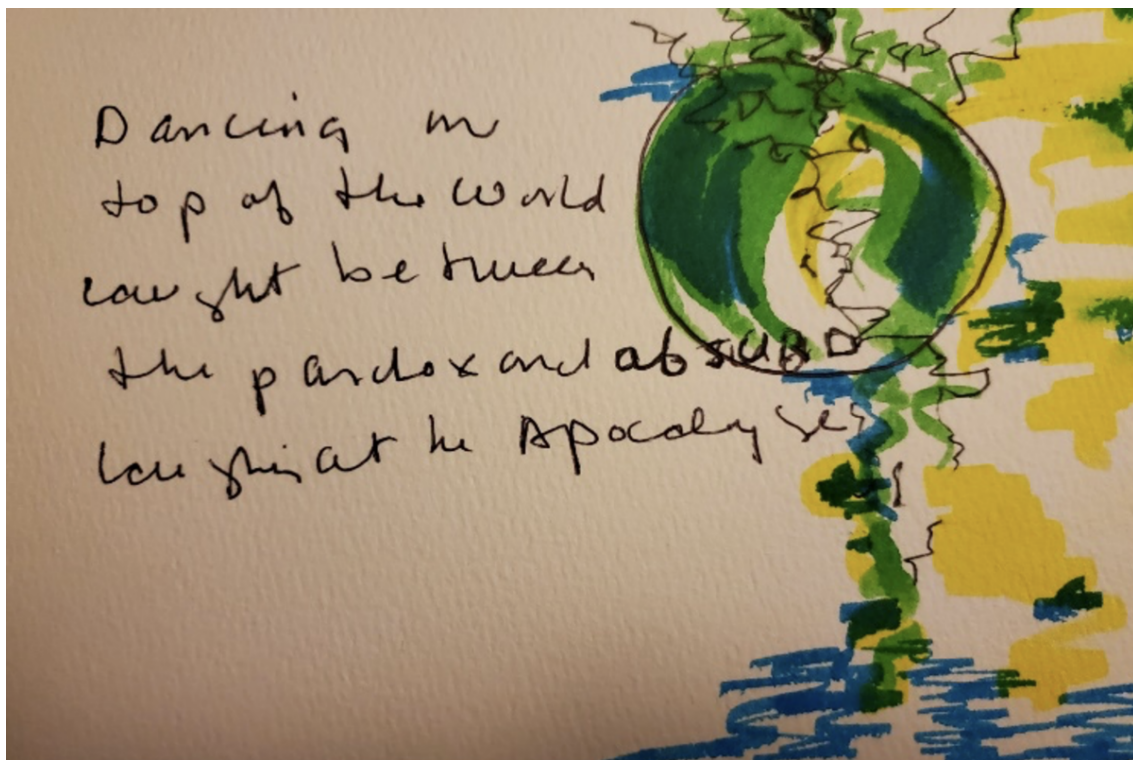 Dancing on
top of the World
caught between
the pardox and absURD
laughin at the Apocalypse